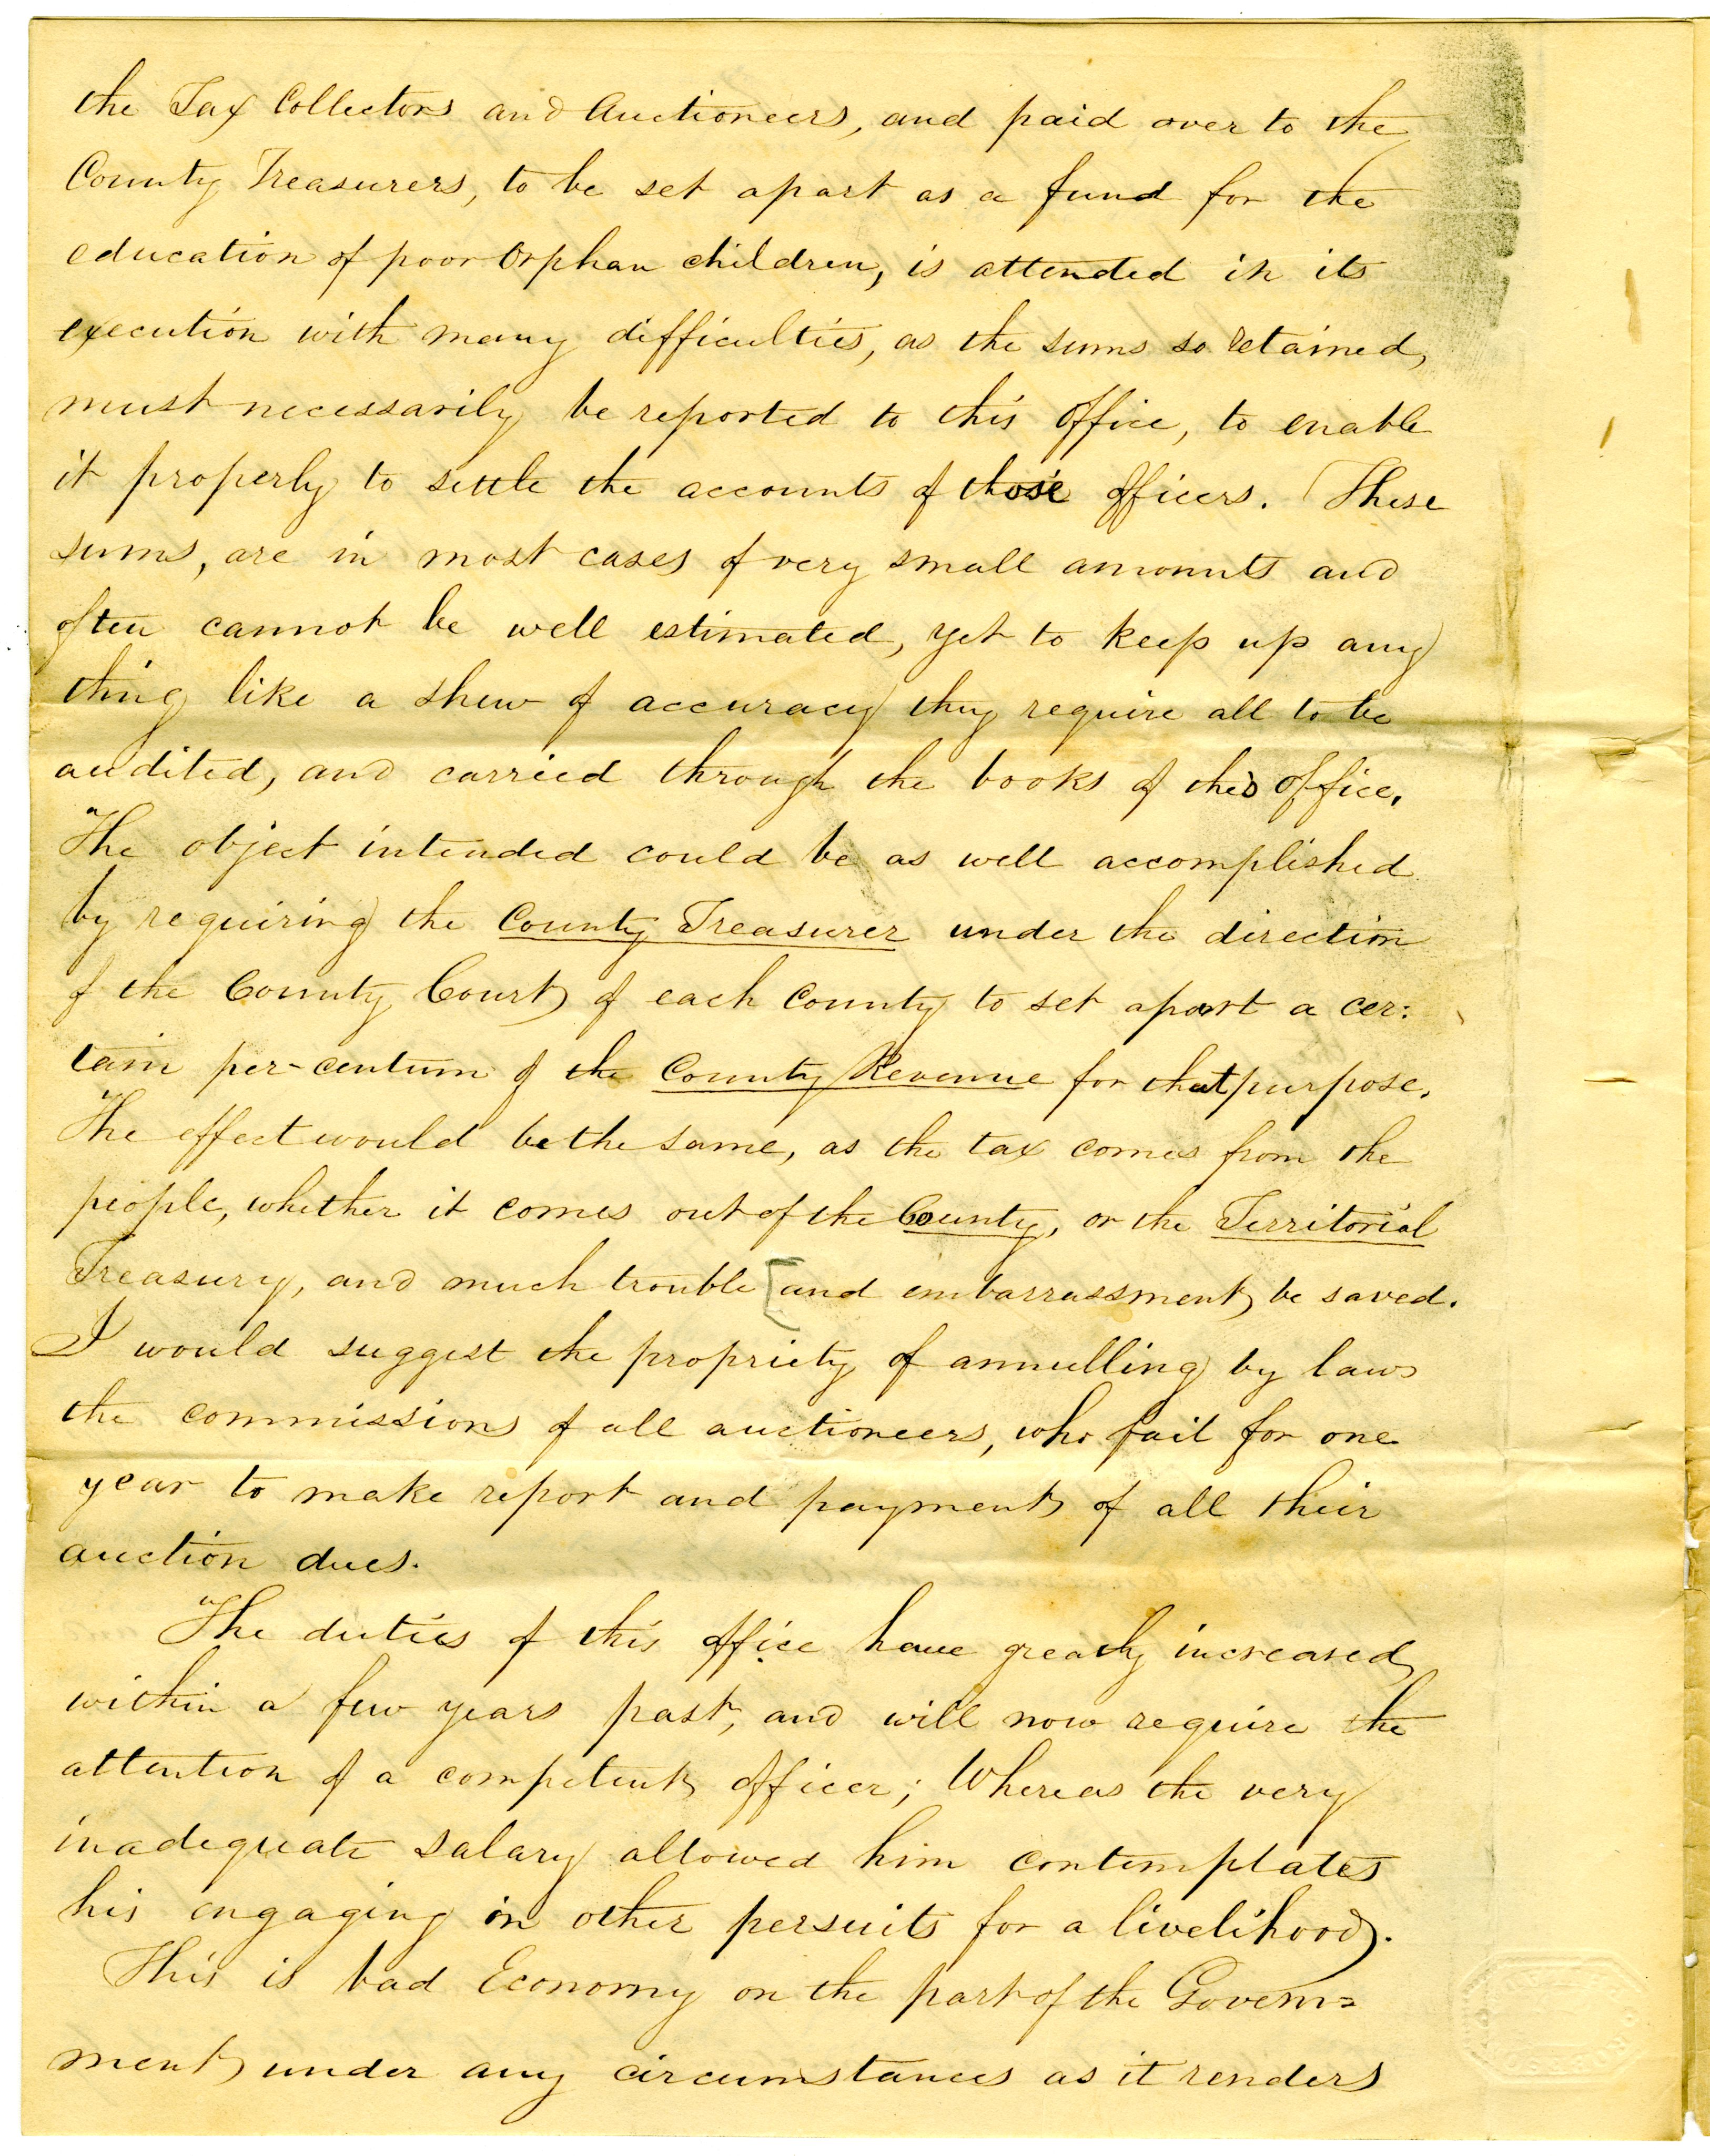 the Tax Collectors and Auctioneers, and paid over to the
County Treasurers, to be set apart as a fund for the
education of poor Orphan children, is attended in its
execution with many difficulties, as the sums so retained,
must necessarily be reported to this office, to enable
it properly to settle the accounts of those officers. These
sums, are in most cases of very small amounts and
often cannot be well estimated, yet to keep up any
thing like a shew of accuracy they require all to be
audited, and carried through the books of this office.
The object intended could be as well accomplished
by requiring the County Treasurer under the direction
of the County Court of each County to set apart a cer:
tain per-centum of the County Revenue for that purpose.
The effect would be the same, as the tax comes from the
people, whether it comes out of the County, or the Territorial
Treasury, and much trouble [and embarrassment be saved.
I would suggest the propriety of annulling by law
the commissions of all auctioneers, who fail for one
year to make report and payment of all their
auction dues.
The duties of this office have greatly increased
within a few years past, and will now require the
attention of a competent officer; Whereas the very
inadequate salary allowed him contemplates
his engaging in other persuits for a livelihood.
This is bad Economy on the part of the Govern=
ment under any circumstances as it renders